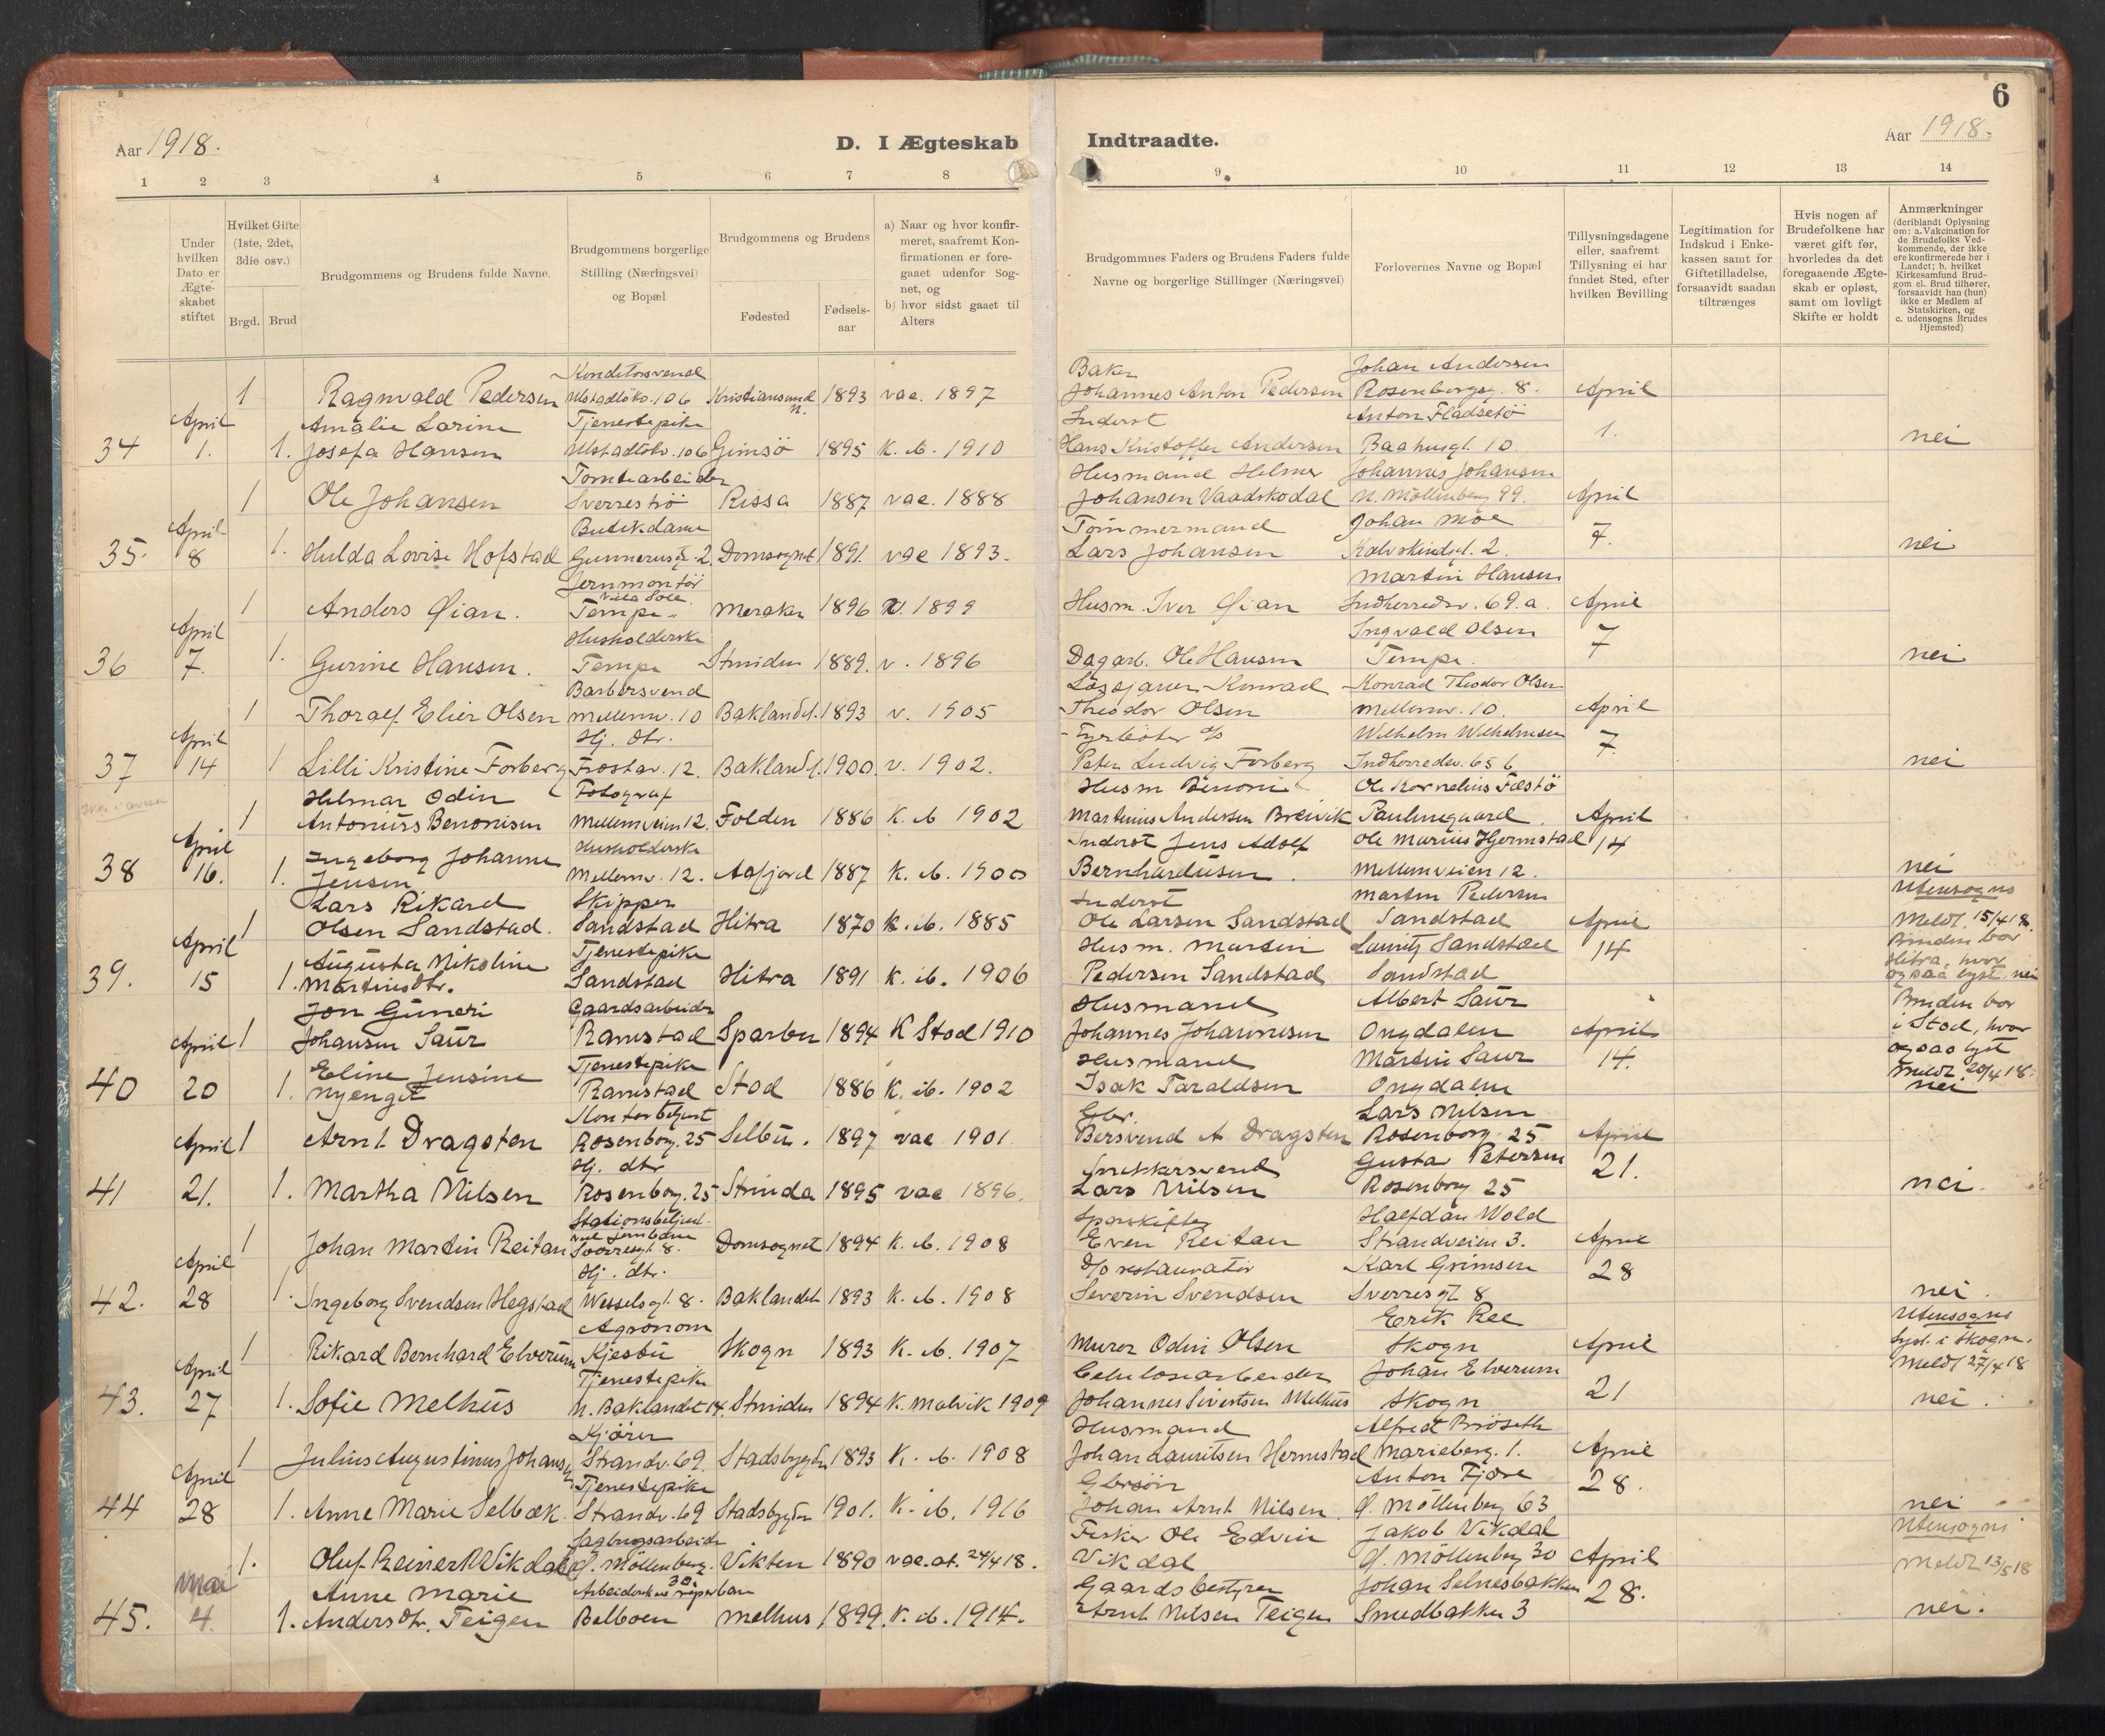 6
Aar 1918.
D. I Ægteskab Indtraadte.
Aar 1918.
1 2 3 4 5 6 7 8 9 10 11 12 13 14
Under hvilken Dato er Ægteskabet stiftet
Hvilket Gifte (1ste, 2det, 3die osv.)
Brgd. Brud
Brudgommens og Brudens fulde Navne.
Brudgommens borgerlige Stilling (Næringsvei) og Bopæl
Brudgommens og Brudens
Fødested Fødsels-aar
a) Naar og hvor konfirmeret, saafremt Konfirmationen er foregaaet udenfor Sognet, og
b) hvor sidst gaaet til Alters
Brudgommnes Faders og Brudens Faders fulde Navne og borgerlige Stillinger (Næringsvei)
Forlovernes Navne og Bopæl
Tillysningsdagene eller, saafremt Tillysning ei har fundet Sted, efter hvilken Bevilling
Legitimation for Indskud i Enkekassen samt for Giftetilladelse, forsaavidt saadan tiltrænges
Hvis nogen af Brudefolkene har været gift før, hvorledes da det foregaaende Ægteskab er opløst, samt om lovligt Skifte er holdt
Anmærkninger (deriblandt Oplysning om: a. Vakcination for de Brudefolks Vedkommende, der ikke ere konfirmerede her i Landet; b. hvilket Kirkesamfund Brudgom el. Brud tilhører, forsaavidt han (hun) ikke er Medlem af Statskirken, og c. udensogns Brudes Hjemsted)
Konditorsvend Baker Johan Andersen
1 Ragnvald Pedersen Ulstadløkv. 106 Kristiansund n. 1893 vac. 1897 Johannes Anton Pedersen Rosenborgg. 8. April
April Amalie Larine Tjenestepike Inderst Anton Fladsetø
34 1. 1. Josefa Hansen Ulstadløkv. 106 Gimsö 1895 K. ib. 1910 Hans Kristoffer Andersen Baahusgt. 10. 1. nei
Tomtearbeider Husmand Helmer Johannes Johansen
1 Ole Johansen Sverreströ Rissa 1887 vac. 1888 Johansen Vaadskodal N. Möllenberg 99. April
April Butikdame Tömmermand Johan Moe
35. 8 1. Hulda Lovise Hofstad Gunnerusgt. 2. Domsognet 1891. vac 1893. Lars Johansen Kalvskindsgt. 2. 7. nei
Jernmontör Martin Hansen
1 Anders Øian. Tempe Meraker 1896 v. 1899 Husm. Iver Øian Indherredsv. 69.a. April
April Husholderske Ingvald Olsen
36 7. 1. Gurine Hansen. Tempe Strinden 1889. v. 1896 Dagarb. Ole Hansen Tempe. 7 nei
Barbersvend Løssjauer Konrad Konrad Theodor Olsen
1 Thoralf Elier Olsen Mellemv. 10 Baklandet. 1893 v. 1905 Theodor Olsen Mellemv. 10. April
April Hj. dtr. Fyrböter Wilhelm Wilhelmsen
37 14 1 Lilli Kristine Forberg Frostav. 12. Bakland. 1900. v. 1902. Peter Ludvig Forberg Indherredsv. 65 b 7. nei
Hilmar Odin Fotograf Husm Benoni Ole Kornelius Fæstö
1 Antonius Benonisen Mellemveien 12. Folden 1886 K. ib 1902 Martinius Andersen Breivik Paulinegaard. April
April Ingeborg Johanne Husholderske Inderst Jens Adolf Ole Marius Hjermstad
38 16. 1. Jensen Mellemv. 12. Aafjord 1887 K. ib. 1900 Bernhardusen. Mellemveien 12. 14 nei
Lars Rikard Skipper Inderst Martin Pedersen Utensogns
1 Olsen Sandstad. Sandstad Hitra 1870 K. ib. 1885 Ole Larsen Sandstad Sandstad April Meldt. 15/4 18.
April Augusta Nikoline Tjenestepike Husm. Martin Lauritz Sandstad Bruden bor
39. 15 1. Martinsdtr. Sandstad Hitra 1891 K. ib. 1906 Pedersen Sandstad Sandstad 14 Hitra, hvor ogsaa lyst. nei
Jon Guneri Gaardsarbeider Husmand Albert Saur Bruden bor
April 1 Johansen Saur Ramstad Sparbu 1894 K Stod 1910 Johannes Johannesen Ongdalen April i Stod, hvor
Eline Jensine Tjenestepike Husmand Martin Saur ogsaa lyst
40 20 1. Nyenget Ramstad Stod 1886 K. ib. 1902 Isak Taraldsen Ongdalen 14. Meldt 20/4 18. nei
Kontorbetjent Gbr. Lars Nilsen
April 1 Arnt Dragsten Rosenborg. 25 Selbu. 1897 vac 1901. Bersvend A. Dragsten Rosenborg. 25 April
Hj. dtr Snekkersvend Gustav Petersen
41 21. 1. Martha Nilsen Rosenborg. 25 Strinda 1895 vac 1896. Lars Nilsen Rosenborg 25 21. nei.
Stationsbetjent ved jernbanen Sporskifter Halfdan Wold
1 Johan Martin Reitan Sverresgt. 8. Domsognet 1894 K. ib. 1908 Even Reitan Strandveien 3. April
April Hj. dtr. D/o restauratör Karl Grimsen
42. 28 1. Ingeborg Svendsen Hegstad Wesselsgt. 8. Baklandet 1893 K. ib. 1908 Severin Svendsen Sverresgt 8 28 nei.
Agronom Erik Ree Utensogns
1 Rikard Bernhard Elverum Kjesbu Skogn 1893 K. ib. 1907 Murer Odin Olsen Skogn April Lyst. i Skogn.
April Tjenestepike Celulosearbeider Johan Elverum Meldt 27/4 18
43. 27 1. Sofie Melhus N. Baklandet 14. Strinden 1894 K. Malvik 1909 Johannes Sivertsen Melhus Skogn 21 nei.
Kjörer Husmand Alfred Bröseth
1 Julius Augustinus Johansen Strandv. 69. Stadsbygden 1893 K. ib. 1908 Johan Lauritsen Hermstad Marieberg. 1. April
April Tjenestepike Gbrsön Anton Fjære
44 28 1. Anne Marie Selbæk. Strandv. 69 Stadsbygden 1901. K. ib. 1916 Johan Arnt Nilsen. Ø. Möllenberg 63 28. nei
Sagbrugsarbeider Fisker Ole Edvin Jakob Vikdal Utensogns
1. Oluf Reinert Vikdal Ø. Möllenberg. 30 Vikten 1890 vac. at. 24/4 18. Vikdal Ø. Möllenberg 30 April Meldt 13/5 18
Mai Anne Marie Arbeiderske Gaardsbestyrer Johan Selnesbakken
45. 4. 1. Andersdtr. Teigen Belboen Melhus 1899. K. ib. 1914. Arnt Nilsen Teigen Smedbakken 3 28. nei.